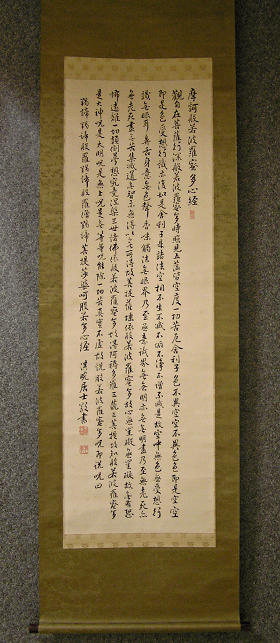 摩訶般若波羅蜜多心經
觀自在菩薩行深般若波羅蜜多時照見五蘊皆空度一切苦厄舍利子色不異空空不異色色即是空空
即是色受想行識亦復如是舍利子是諸法空相不生不滅不垢不淨不增不減是故空中無色無受想行
識無眼耳鼻舌身意無色聲香味觸法無眼界乃至無意識界無無明亦無無明盡乃至無老死亦
無老死盡無苦集滅道無智亦無得以無所得故菩提薩埵依般若波羅蜜多故心無罣礙無罣礙故無有恐
怖遠離一切顛倒夢想究竟涅槃三世諸佛依般若波羅蜜多故得阿耨多羅三藐三菩提故知般若波羅蜜多
是大神呪是大明呪是無上呪是無等等呪能除一切苦真實不虛故說般若波羅蜜多呪即說呪曰
揭諦揭諦般羅揭諦般羅僧揭諦菩提薩婆呵般若多心經
居士敬書